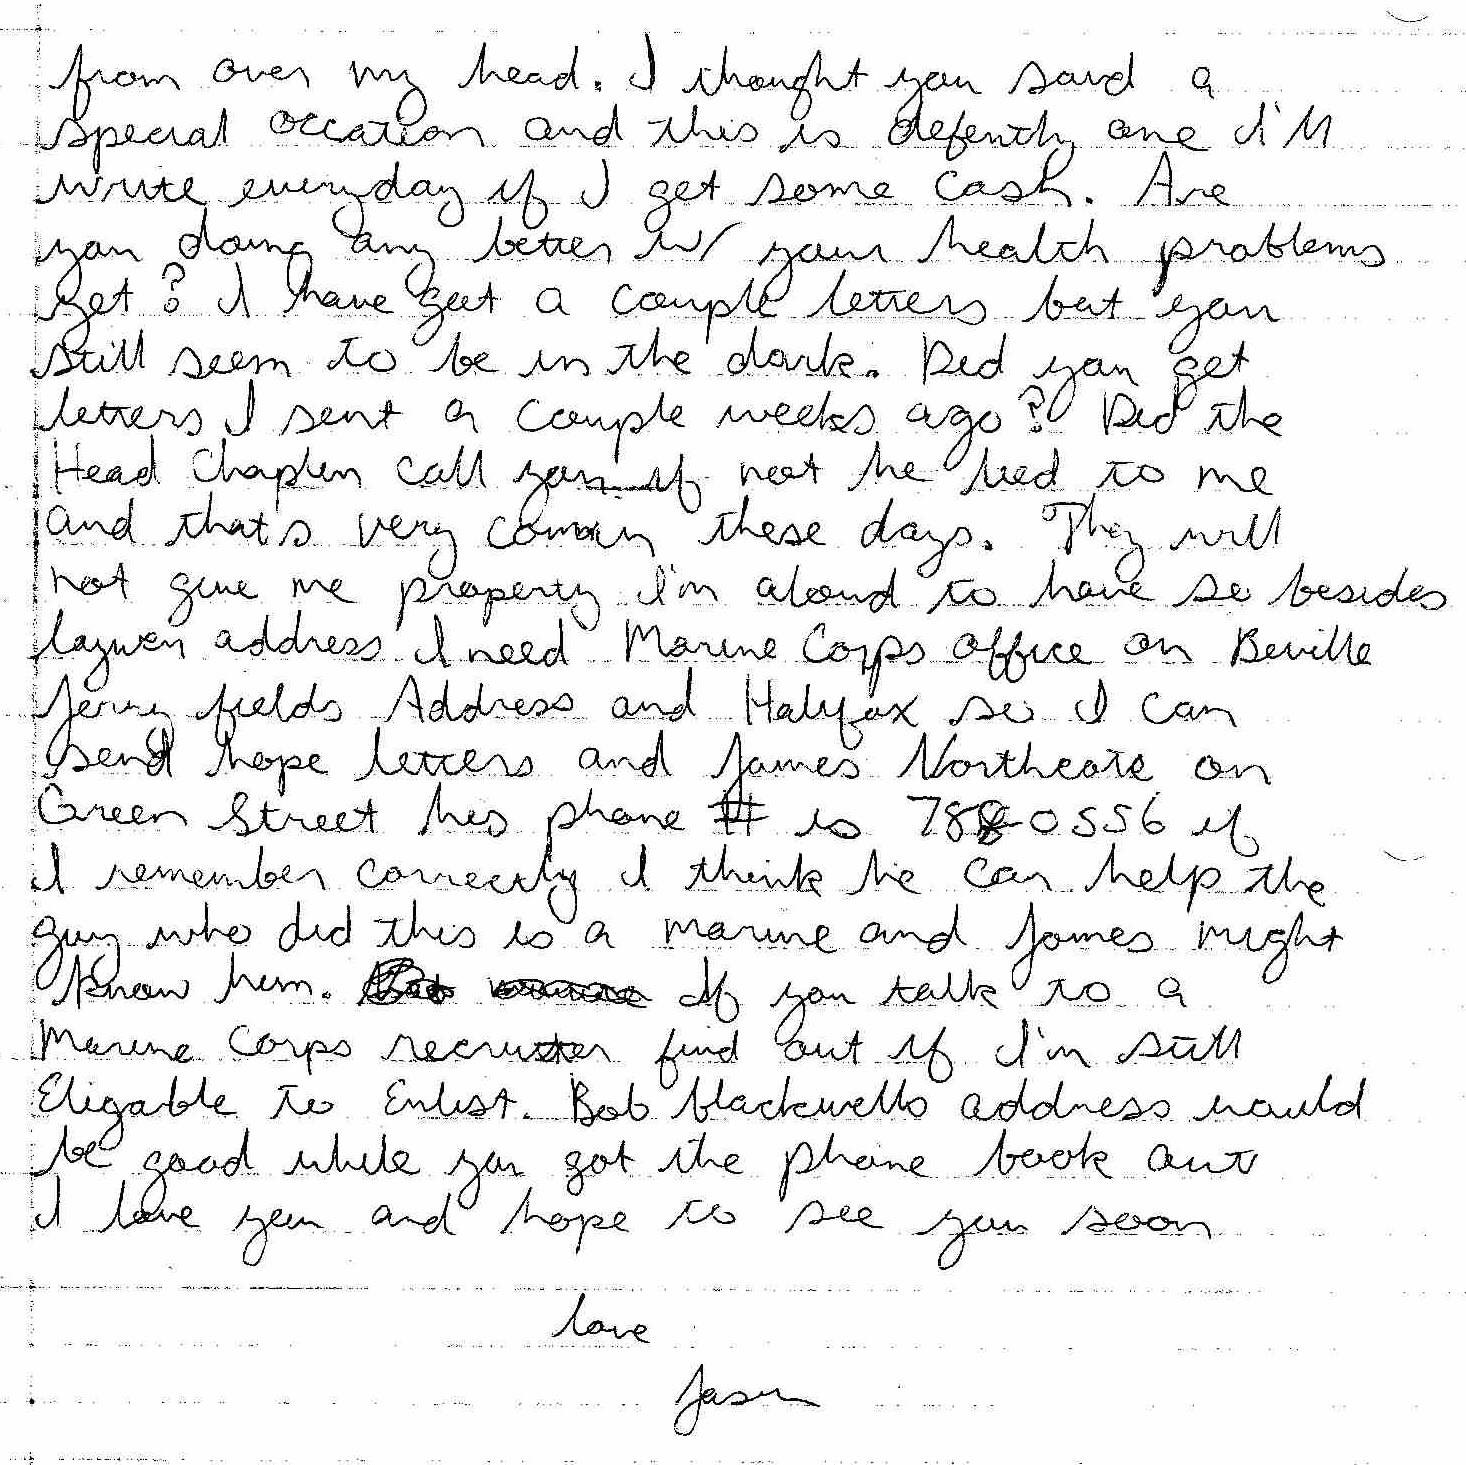 from over my head. I thought you said a
special occation and this is defently one I'll
write everyday if I get some cash. Are
you doing any better w/ your health problems
yet? I have got a couple letters but you
still seem to be in the dark. Did you get
letters I sent a couple weeks ago? Did the
Head Chaplin call you if not he lied to me
and that's very common these days. They will
not give me property I'm aloud to have so besides
laywer address I need Marine Corps office on Beville
Jerry fields Address and Halifax so I can
send hope letters and James Northcote on
Green Street his phone # is 788-0556 if
I remember correctly I think he can help the
guy who did this is a marine and James might
know him. If you talk to a
Marine Corps recruiter find out if I'm still
Eligable to Enlist. Bob blackwells address would
be good while you got the phone book out
I love you and hope to see you soon
love
Jason